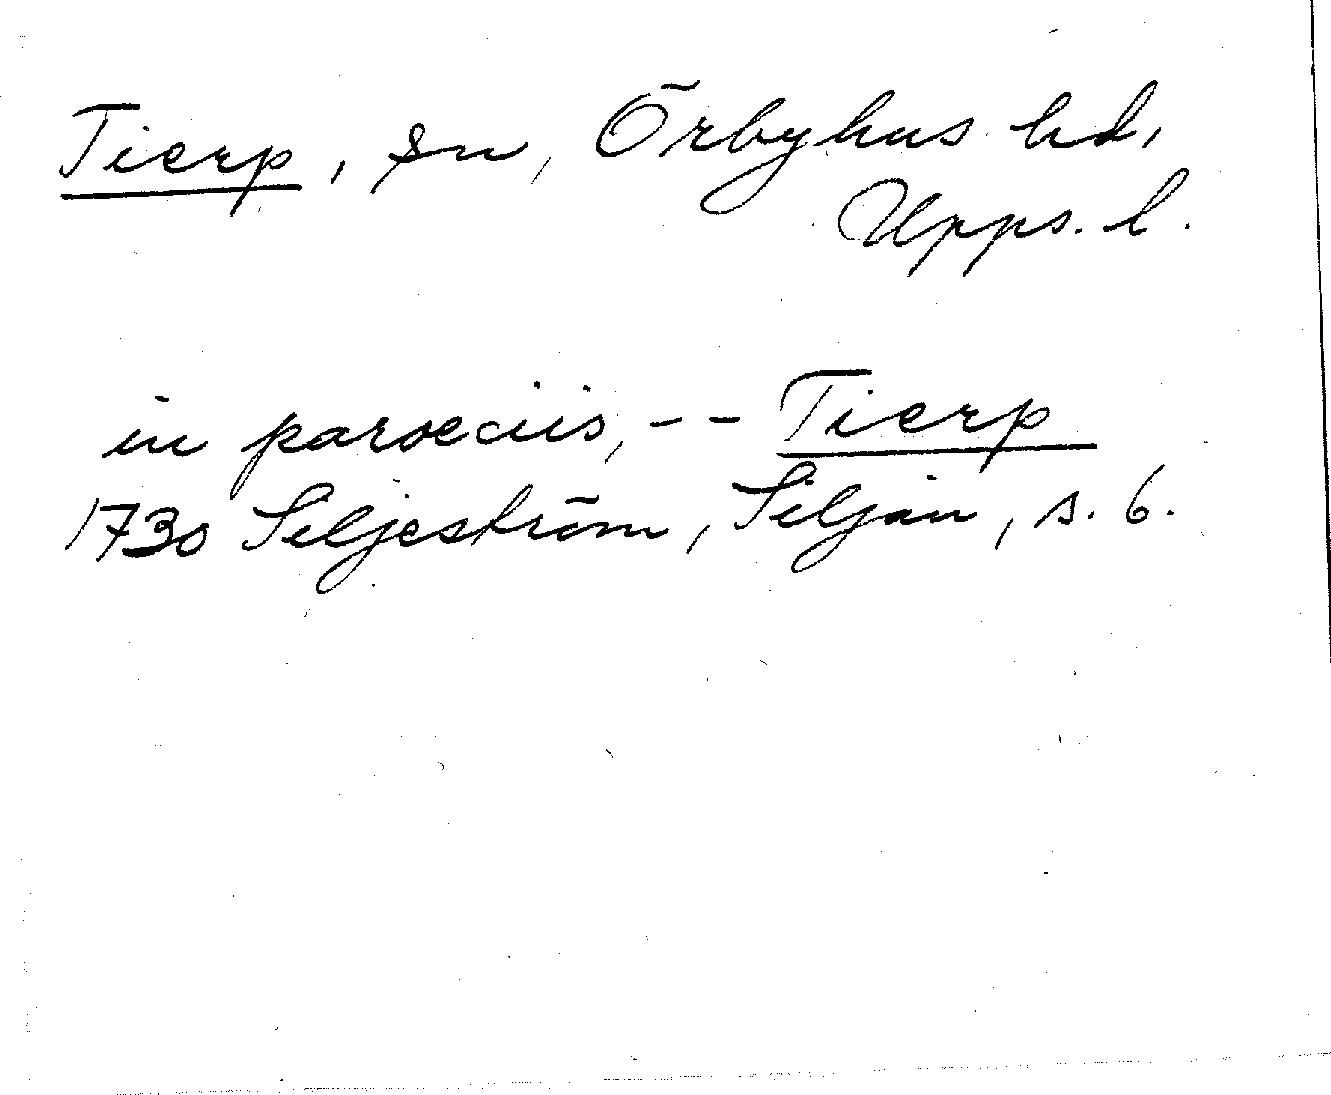 Tierp, sn, Örbyhus hd,
Upps. l.
in paroeciis, -- Tierp
1730 Seljeström, Siljan, s. 6.